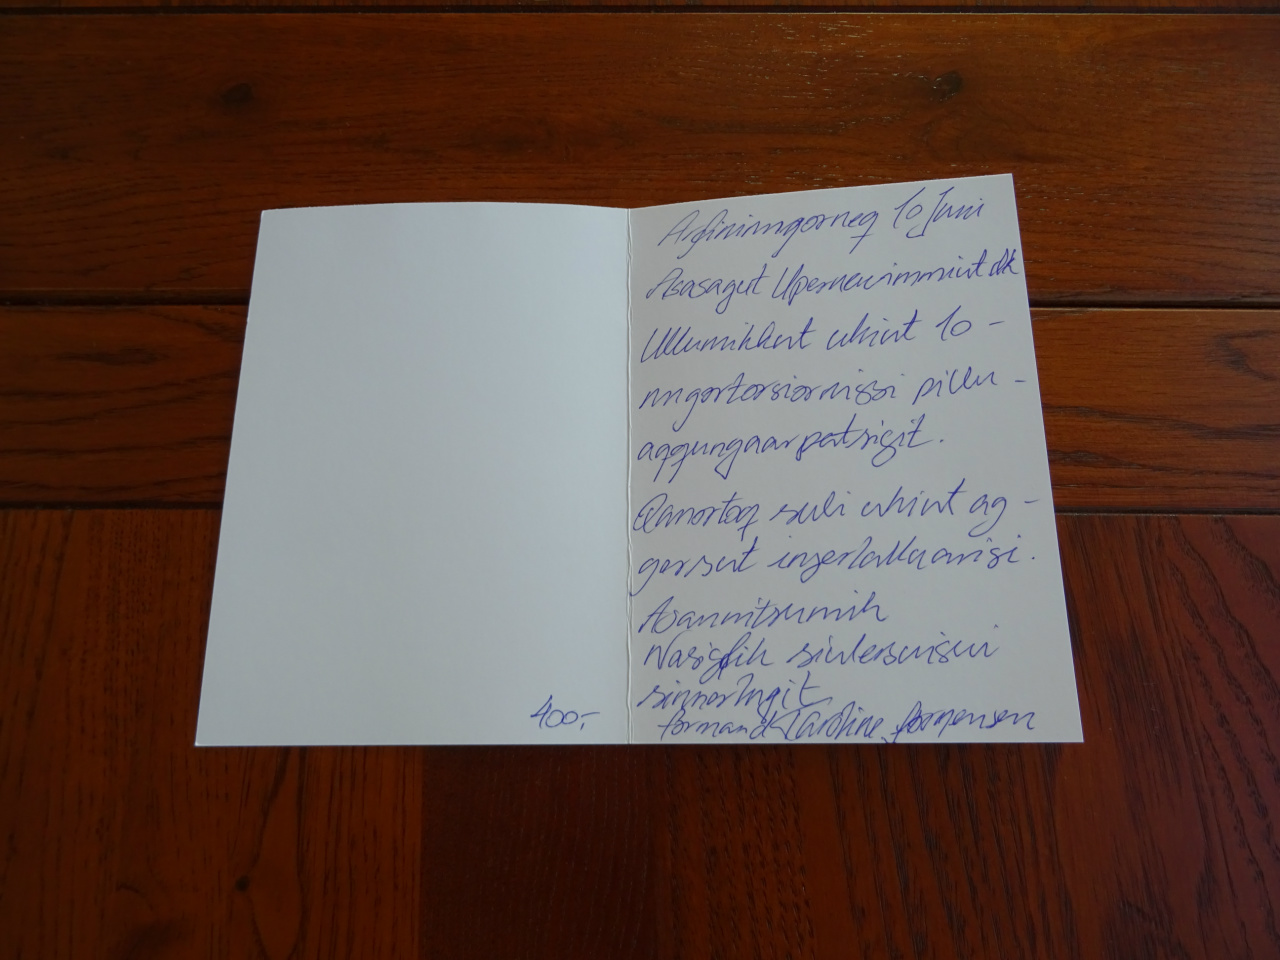 Arfininngorneq 10 Juni
Asasagut Upernavimmiut dk
Ullumikkut ukiut 10 -
nngortorsiornissi pillu -
aqqungaarpatsigit.
Qanortoq suli ukiut ag -
gersut ingerlalluarisi.
Asannitsumik
Nasiffik siulersuisui
sinnerlugit
formand Karoline Jørgensen
400,-